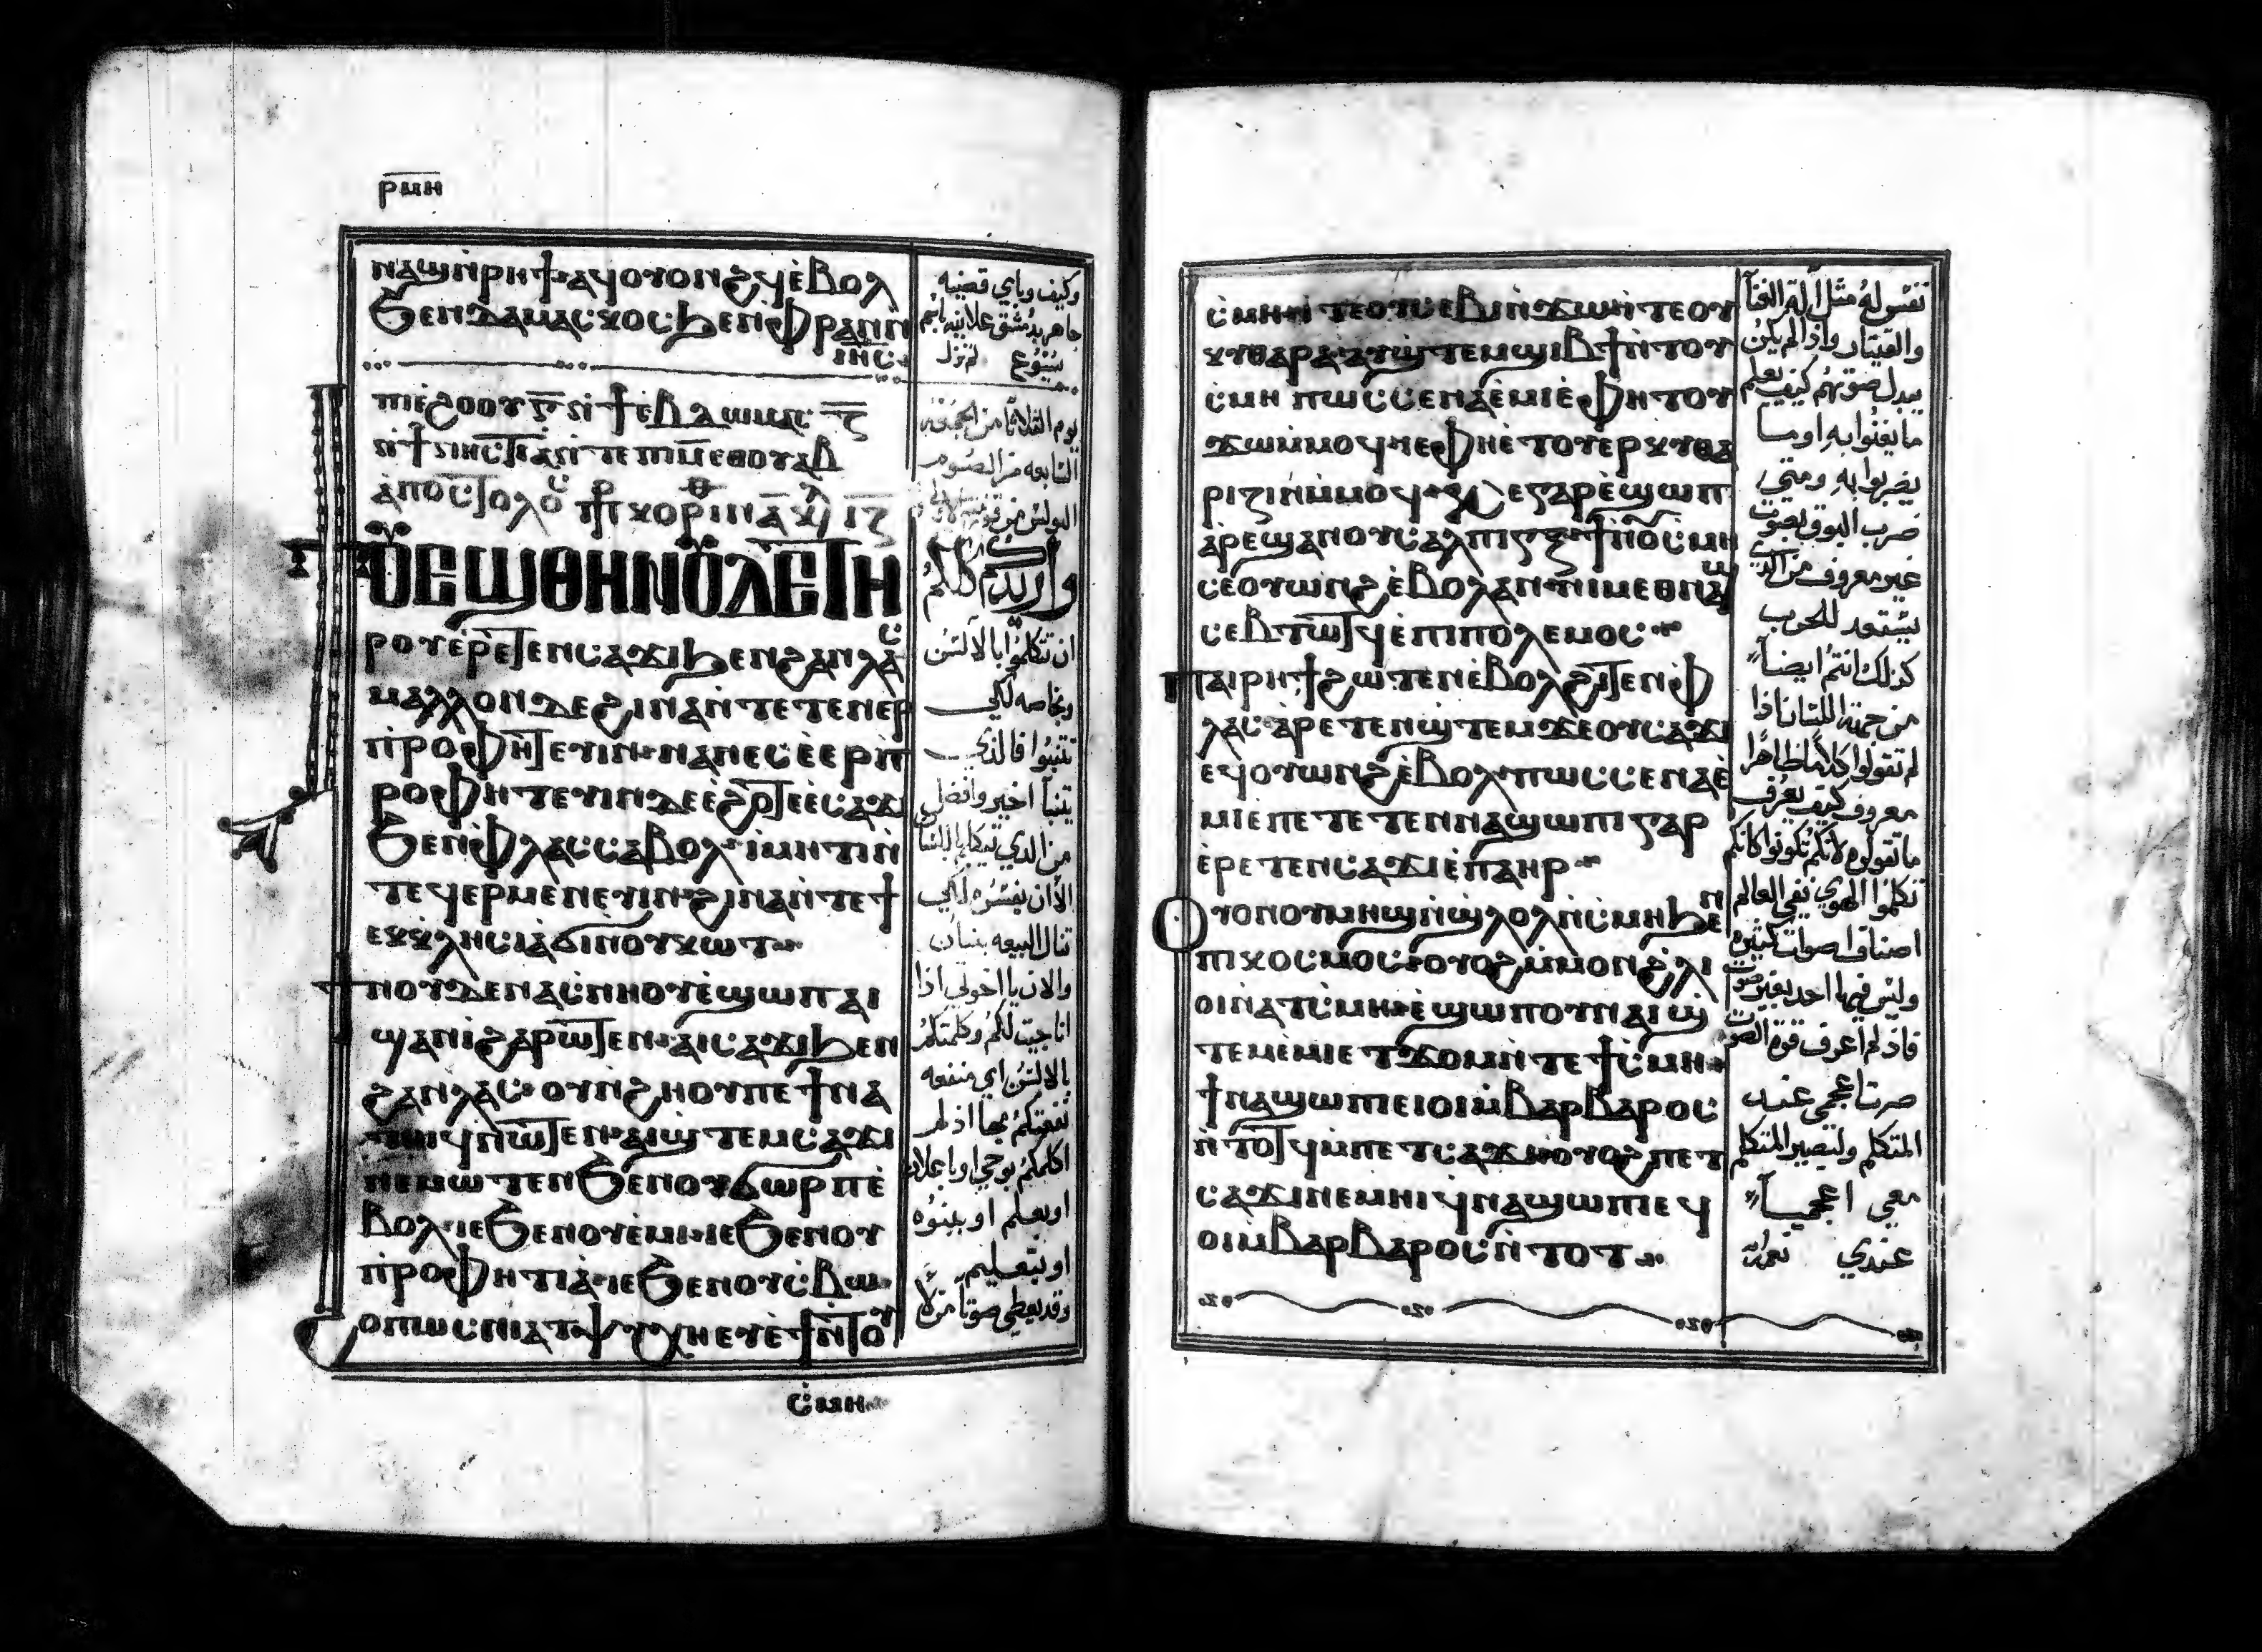 ⲣⲙⲏ
ⲛⲁϣⲛ̀ⲣⲏϯⲁϥⲟⲩⲟⲛϩϥⲉ̀ⲃⲟⲗ
ϧⲉⲛⲇⲁⲙⲁⲥⲕⲟⲥϧⲉⲛⲫⲣⲁⲛⲛ̀
ⲓⲏ̅ⲥ
وكيف وباي قضيه
جاهر بدمشق علانيه باسم
يسوع لم نزل
ⲡⲓⲉ̀ϩⲟⲟⲩ
ⲛ̀ϯⲛⲏⲥⲧⲓⲁ̀ⲛ̀ⲧⲉⲡⲓⲙ̅ⲉⲑⲟⲩⲁⲃ
ⲁ̀ⲡⲟⲥⲧⲟⲗⲟ
يوم الثلاثا من الجمعه
السابعه من الصوم
ⲟⲩⲉϣⲑⲏⲛⲟⲩⲗⲉⲧⲏ
ⲣⲟⲩⲉ̀ⲣⲉⲧⲉⲛⲥⲁϫⲓϧⲉⲛϩⲁⲛⲗⲁⲥ
ⲙⲁⲗⲗⲟⲛⲇⲉϩⲓⲛⲁⲛ̀ⲧⲉⲧⲉⲛⲉⲣ
ⲡ̀ⲣⲟⲫⲏⲧⲉⲩⲓⲛ·ⲛⲁⲛⲉⲥⲉ̀ⲉⲣⲡ̀
ⲣⲟⲫⲏⲧⲉⲩⲓⲛⲇⲉⲉ̀ϩⲟⲧⲉⲉ̀ⲥⲁϫⲓ
ϧⲉⲛⲫⲗⲁⲥⲥⲁⲃⲟⲗ·ⲓⲙⲏⲧⲓⲛ̀
ⲧⲉϥⲉⲣⲙⲉⲛⲉⲩⲓⲛ·ϩⲓⲛⲁⲛ̀ⲧⲉϯ
ⲉⲕⲕⲗⲏⲥⲓⲁϭⲓⲛⲟⲩⲕⲱⲧ
ϯⲛⲟⲩⲇⲉⲛⲁⲥ̀ⲛⲏⲟⲩⲉ̀ϣⲱⲡⲁⲓ
ϣⲁⲛⲓ̀ϩⲁⲣⲱⲧⲉⲛ·ⲁⲓⲥⲁϫⲓϧⲉⲛ
ϩⲁⲛⲗⲁⲥ·ⲟⲩⲛ̀ϩⲏⲟⲩⲡⲉϯⲛⲁ
ⲧⲏⲓϥⲛ̀ⲱⲧⲉⲛ·ⲁⲓϣⲧⲉⲙⲥⲁϫⲓ
ⲛⲉⲙⲱⲧⲉⲛϧⲉⲛⲟⲩϭⲱⲣⲡⲉ̀
ⲃⲟⲗ·ⲓⲉϧⲉⲛⲟⲩⲉ̀ⲙⲓ·ⲓⲉϧⲉⲛⲟⲩ
ⲡ̀ⲣⲟⲫⲏⲧⲓⲁ̀·ⲓⲉϧⲉⲛⲟⲩⲥ̀ⲃⲱ
ⲟⲙⲱⲥⲛⲓⲁⲧⲯⲩⲭⲏⲉⲩⲉ̀ϯⲛ̀ⲧⲟⲩ
ⲥ̀ⲙⲏ
واريد كلكم
ان تتكلموا بالالسن
وبخاصه لكي
تتنبوا فالذي
يتنبأ اخير وافضل
من الذي يتكلم باللسان
الا ان يفسره لكي
تنال البيعه بنيان
والان يا اخوتي اذا
انا جيت لكم وكلمتكم
بالالسن اي منفعه
نفعتكم بها اذ لم
اكلمكم بوحي او باعلان
او بعلم او بنبوه
او بتعليم
وقد يعطي صوتا من لا
ⲥ̀ⲙⲏⲛ̀ⲧⲉⲟⲩⲥⲉⲃⲓⲛ̀ϫⲱⲛ̀ⲧⲉⲟⲩ
ⲕⲩⲑⲁⲣⲁ·ⲁⲩϣⲧⲉⲙϣⲓⲃϯⲛ̀ⲧⲟⲩ
ⲥ̀ⲙⲏ ⲡⲱⲥⲥⲉⲛⲁⲉ̀ⲙⲓⲉ̀ⲫⲏⲧⲟⲩ
ϫⲱⲙ̀ⲙⲟϥⲓⲉⲫⲏⲉ̀ⲧⲟⲩⲉⲣⲕⲩⲑⲁ
ⲣⲓⲍⲓⲛⲙ̀ⲙⲟϥ·ⲕⲉⲅⲁⲣⲉ̀ϣⲱⲡ
ⲁ̀ⲣⲉϣⲁⲛⲟⲩⲥⲁⲗⲡⲓⲅⲅⲝϯⲛ̀ⲟⲩⲥⲙⲏ
ⲥⲉⲟⲩⲱⲛϩⲉ̀ⲃⲟⲗⲁⲛ·ⲛⲓⲙⲉⲑⲛⲁϣ
ⲥⲉⲃⲧⲱⲧϥⲉ̀ⲡⲓⲡⲟⲗⲉⲙⲟⲥ
ⲡⲁⲓⲣⲏϯϩⲱⲧⲉⲛⲉ̀ⲃⲟⲗϩⲓⲧⲉⲛⲫ
ⲗⲁⲥⲁ̀ⲣⲉⲧⲉⲛϣⲧⲉⲙϫⲉⲟⲩⲥⲁϫⲓ
ⲉϥⲟⲩⲱⲛϩⲉ̀ⲃⲟⲗ·ⲡⲱⲥⲥⲉⲛⲁⲉ̀
ⲙⲓⲉⲡⲉⲧⲉⲧⲉⲛⲛⲁϣⲱⲡⲓⲅⲁⲣ
ⲉ̀ⲣⲉⲧⲉⲛⲥⲁϫⲓⲉ̀ⲡⲁⲏⲣ
ⲟⲩⲟⲛⲟⲩⲙⲏϣⲛ̀ϣⲗⲟⲗⲛ̀ⲥⲙⲏϧⲉⲛ
ⲡⲓⲕⲟⲥⲙⲟⲥ·ⲟⲩⲟϩⲙ̀ⲙⲟⲛϩⲗⲓ
ⲟⲓⲛ̀ⲁⲧⲥ̀ⲙⲏ·ⲉ̀ϣⲱⲡⲟⲩⲛⲁⲓϣ
ⲧⲉⲙⲉ̀ⲙⲓⲉⲧϫⲟⲙⲛ̀ⲧⲉϯⲥ̀ⲙⲏ
ϯⲛⲁϣⲱⲡⲓⲉⲓⲟⲓⲙ̀ⲃⲁⲣⲃⲁⲣⲟⲥ
ⲛ̀ⲧⲟⲧϥⲙ̀ⲡⲉⲧⲥⲁϫⲓⲟⲩⲟϩⲡⲉⲧ
ⲥⲁϫⲓⲛⲉⲙⲏⲓϥⲛⲁϣⲱⲡⲓⲉϥ
ⲟⲓⲙ̀ⲃⲁⲣⲃⲁⲣⲟⲥⲛ̀ⲧⲟⲧ
نفس له مثل آلة الغنا
والقيتار واذا لم يكن
يبدل صوتهم كيف يعلم
ما يغنوا به او ما
يضربوا به ومتي
ضرب البوق بصوت
غير معروف من الذي
يستعد للحرب
كذلك انتم ايضاً
من جهة اللسان اذا
لم تقولوا كلاما ظاهرا
معروف كيف يعرف
ما تقولوه لانكم تكونوا كانكم
تكلموا الهوي ففي العالم
اصناف اصوات كثيره
وليس فيها احد بغير صوت
فاذ لم اعرف قوة الصوت
صرت اعجمي عند
المتكلم وليصير المتكلم
معي اعجمياً
عندي